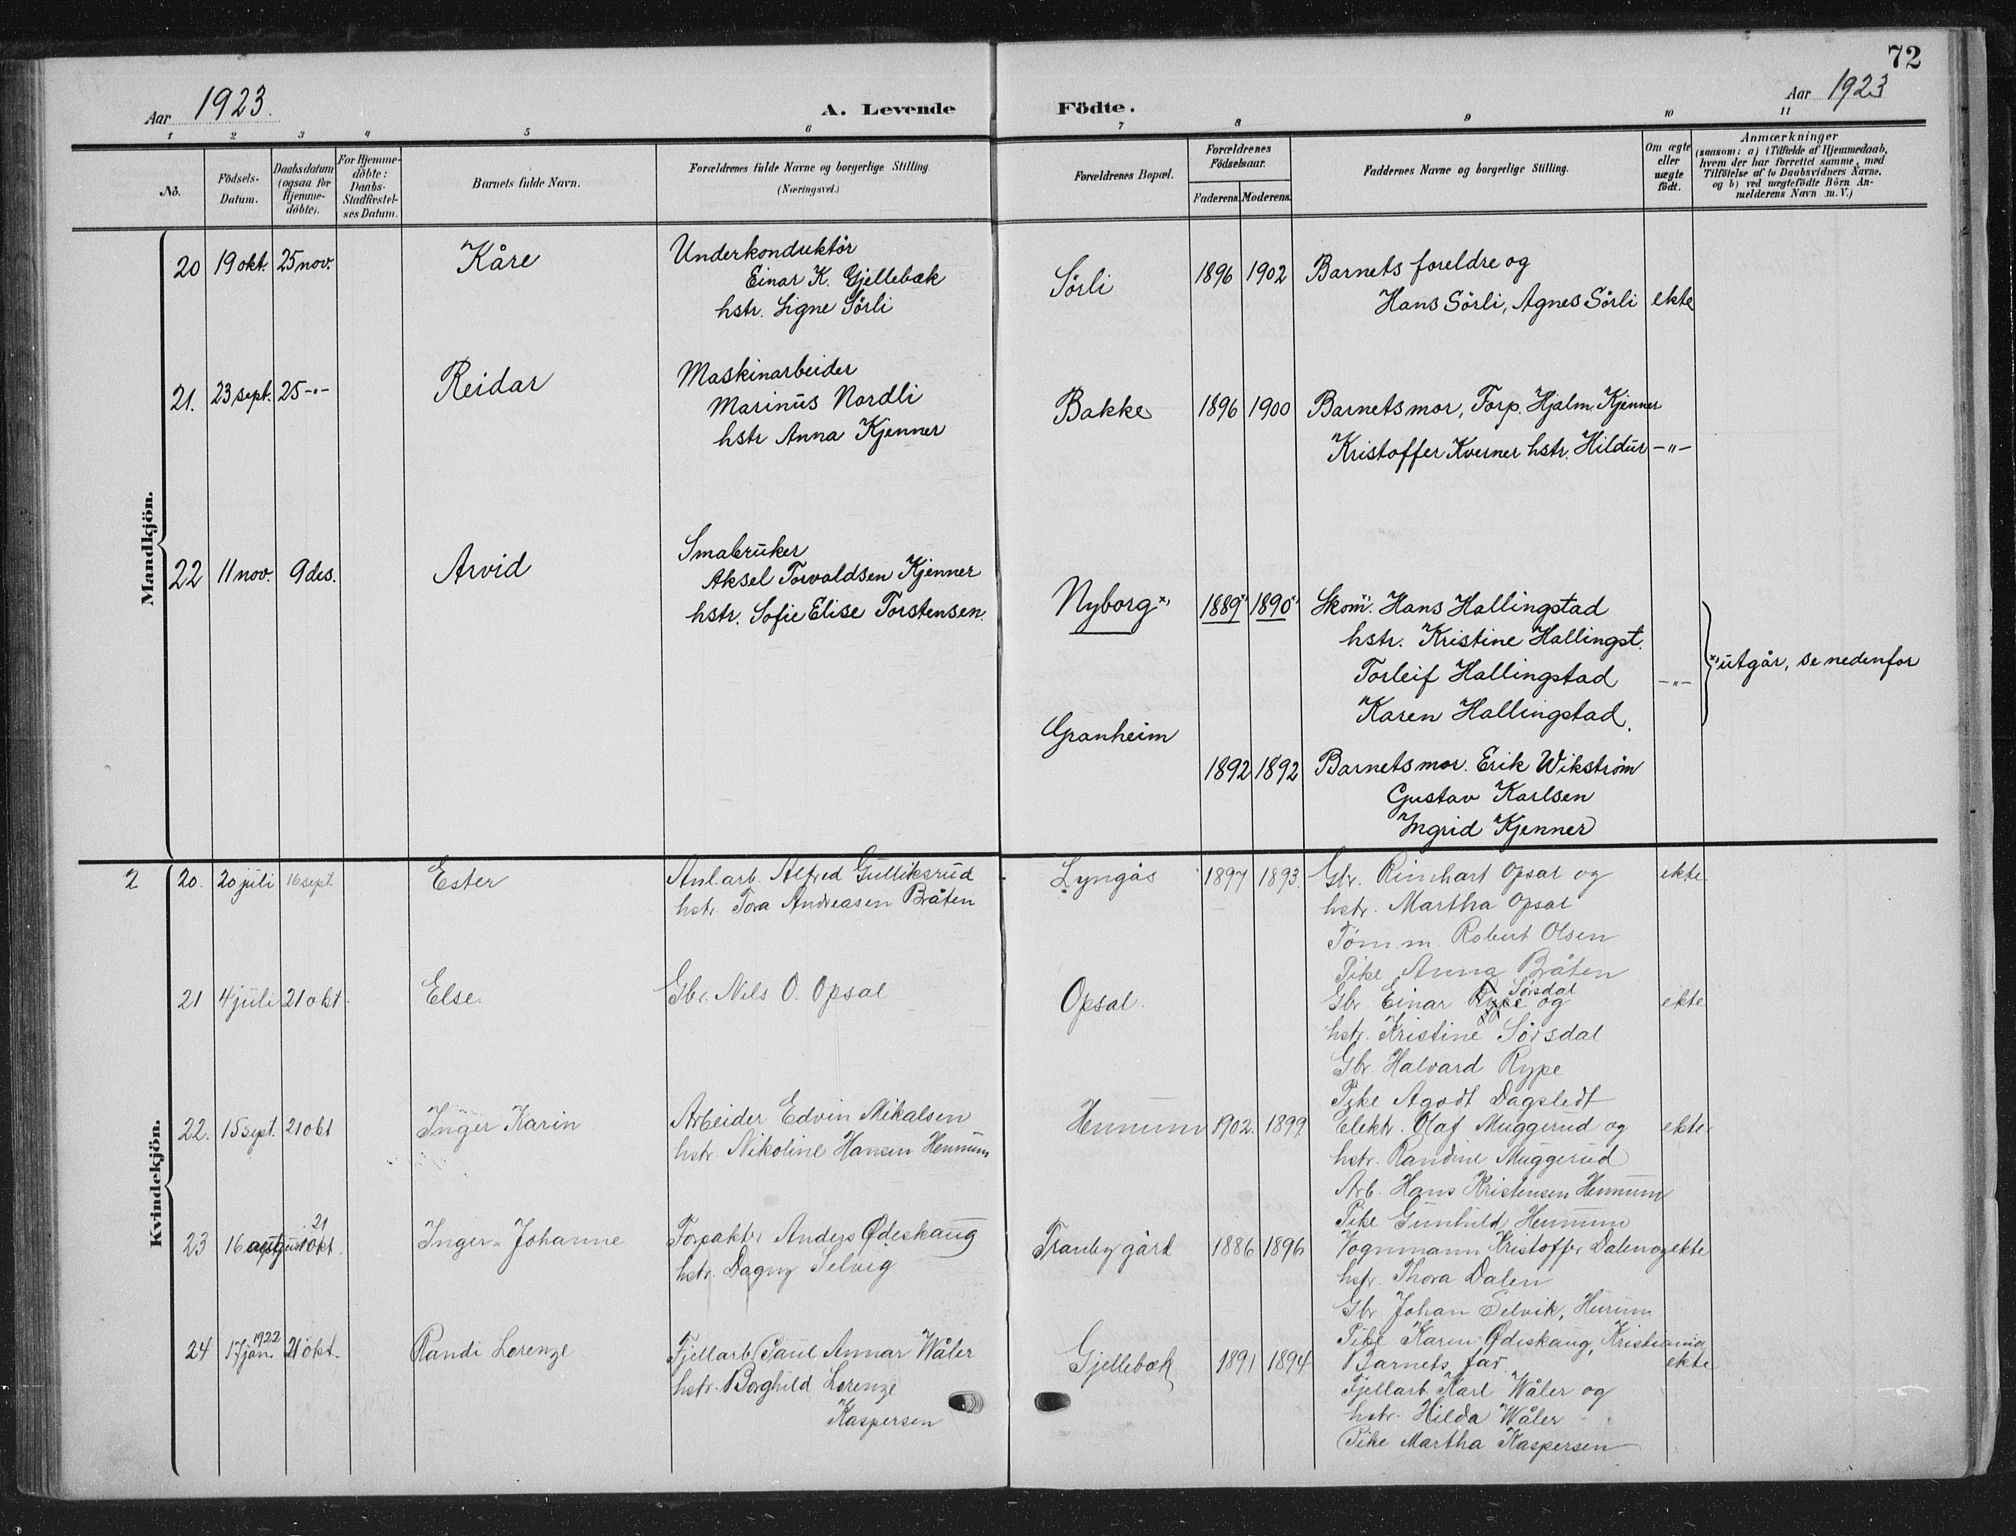 72
Aar 1923.
A. Levende Födte.
Aar 1923
1 2 3 4 5 6 7 8 9 10 11
No.
Födsels-Datum.
Daabsdatum (ogsaa for Hjemme-döbte).
For Hjemme-döbte: Daabs-Stadfestel-ses Datum.
Barnets fulde Navn.
Forældrenes fulde Navne og borgerlige Stilling. (Næringsvei.)
Forældrenes Bopæl.
Forældrenes Födselsaar.
Faderens. Moderens.
Faddernes Navne og borgerlige Stilling.
Om ægte eller uægte födt.
Anmærkninger
(saasom: a) i Tilfælde af Hjemmedaab, hvem der har forrettet samme, med Tilföielse af to Daabsvidners Navne, og b) ved uægtefödte Börn An-melderens Navn m. V.)
Mandkjön.
20 19 okt. 25 nov. Kåre
Underkonduktör
Einar K. Gjellebæk
hstr. Signe Sörli
Sörli 1896 1902
Barnets foreldre og
Hans Sörli, Agnes Sörli ekte
21. 23 sept. 25 -"- Reidar
Maskinarbeider
Marinus Nordli
hstr Anna Kjenner
Bakke 1896 1900
Barnets mor, Torp. Hjalm. Kjenner
Kristoffer Kverner hstr. Hildur -"-
22 11 nov. 9 des. Arvid
Småbruker
Aksel Torvaldsen Kjenner
hstr. Sofie Elise Torstensen.
Nyborg x) 1889 x) 1890 x)
Skom. Hans Hallingstad
hstr. Kristine Hallingst.
Torleif Hallingstad -"-
Karen Hallingstad.
x) utgår, se nedenfor
Granheim 1892 1892
Barnets mor. Erik Wikström
Gustav Karlsen
Ingrid Kjenner
Kvindekjön.
2 20. 20 juli 16 sept. Ester
Anl.arb. Alfred Gulliksrud
hstr. Tora Andreasen Bråten
Lyngås 1897 1893.
Gbr. Rinhart Opsal og ekte
hstr. Martha Opsal
Tøm.m. Robert Olsen
Pike Anna Bråten
21 4 juli 21 okt. Else.
Gbr. Nils O. Opsal
Opsal.
Gbr. Einar Rype Sørsdal og ekte
hstr. Kristine Sørsdal
Gbr. Halvard Rype
Pike Agodt Dagslet
22. 15 sept. 21 okt Inger Karin
Arbeider Edvin Mikalsen
hstr. Nikoline Hansen Hennum
Hennum 1902. 1899.
Elektr. Olaf Muggerud og ekte
hstr. Randine Muggerud
Arb. Hans Kristensen Hennum
Pike Gunhild Hennum
23 16 august 21 okt. Inger-Johanne
Forpakter Anders Ødeskaug
hstr. Dagny Selvig
Tranby gård 1886 1896
Vognmann Kristoffer Dalen og ekte
hstr. Thora Dalen
Gbr Johan Selvik, Hurum
Pike Karen Ødeskaug, Kristiania
24 17 jan. 1922 21 okt. Randi Lorenze
Fjellarb. Paul Annar Wåler
hstr. Borghild Lorenze
Kaspersen
Gjellebæk 1891 1894
Barnets far ekte
Fjellarb Karl Wåler og
hstr. Hilda Wåler
Pike Martha Kaspersen